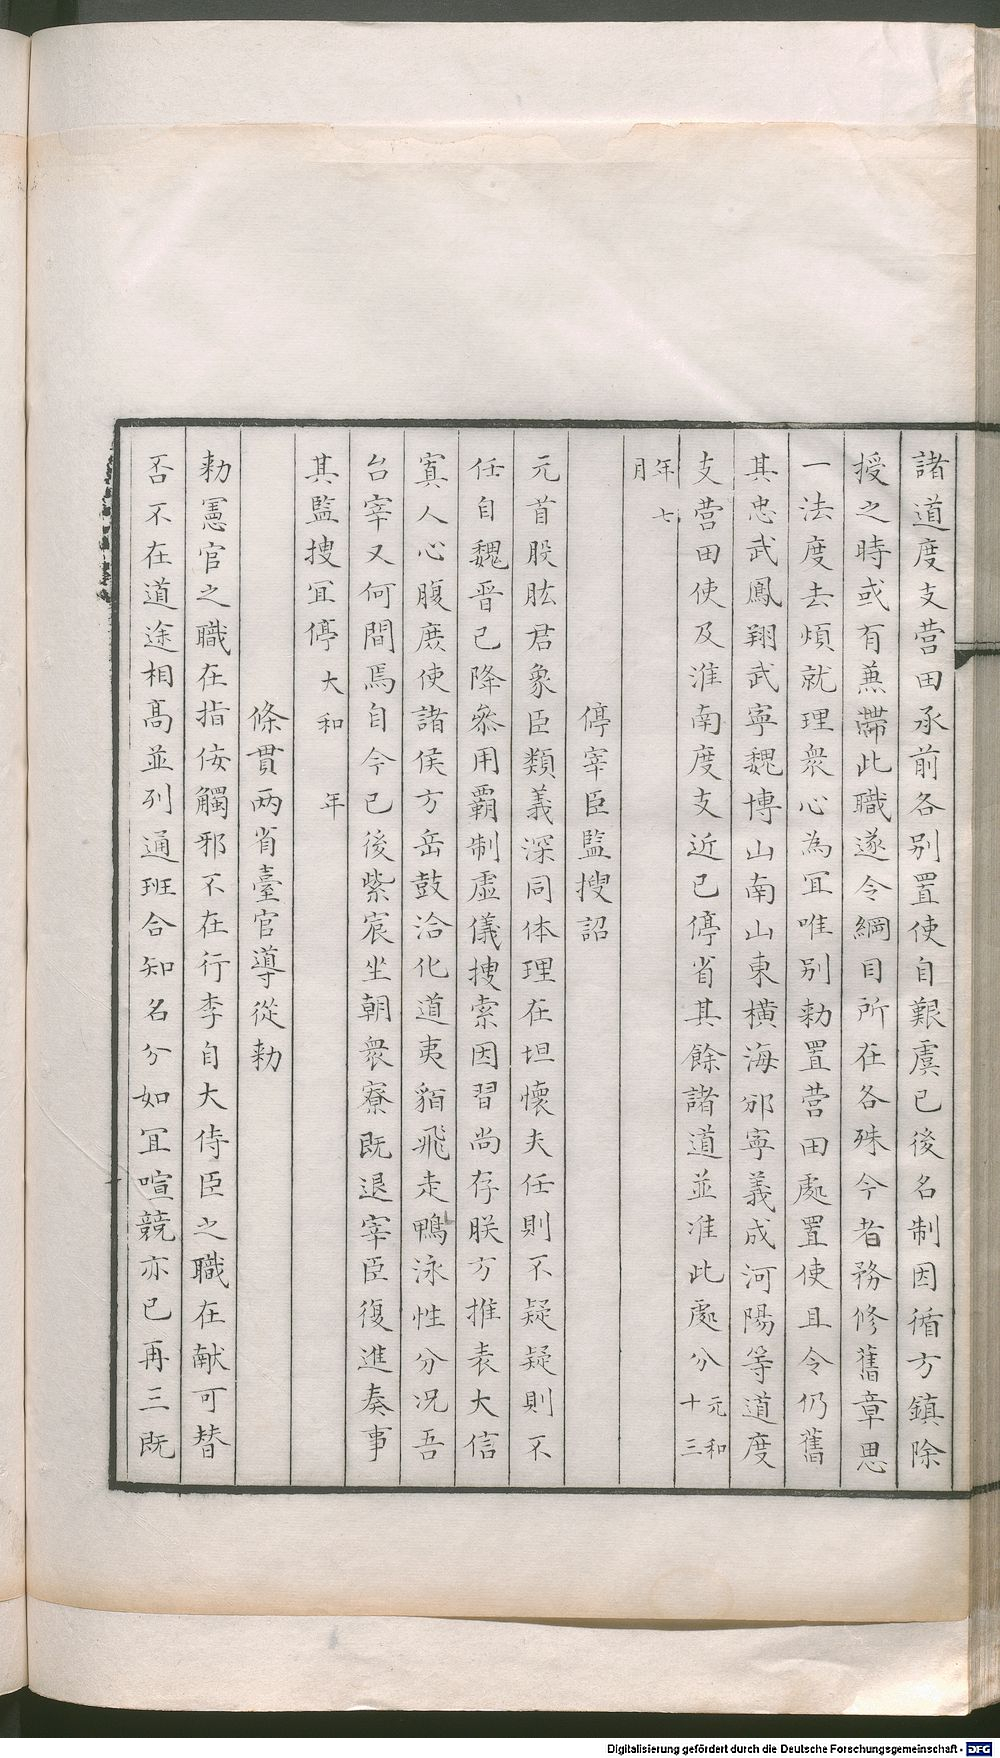 諸道度支营田承前各别置使自艱虞已後名制因循方鎮除
授之時或有兼帶此職遂令綱目所在各殊今者務修舊章思
一法度去煩就理衆心為冝唯别勑置营田處置使且令仍舊
其忠武鳳翔武寧魏博山南山東横海邠寧義成河陽等道度
支营田使及淮南度支近已停省其餘諸道並准此處分元和十三
年七月
停宰臣監搜詔
元首股肱君象臣類義深同体理在坦懷夫任則不疑疑則不
任自魏晋已降叅用覇制虚儀搜索因習尚存朕方推表大信
寘人心腹庶使諸侯方岳鼓洽化道夷貊飛走鴨泳性分况吾
台宰又何間焉自今已後紫宸坐朝衆寮既退宰臣復進奏事
其監搜冝停大和年
條貫兩省臺官導從勑
勑憲官之職在指佞觸邪不在行李自大侍臣之職在献可替
否不在道途相髙並列通班合知名分如冝喧競亦已再三既
Digitalisierung gefördert durch die Deutsche Forschungsgemeinschaft - DFG